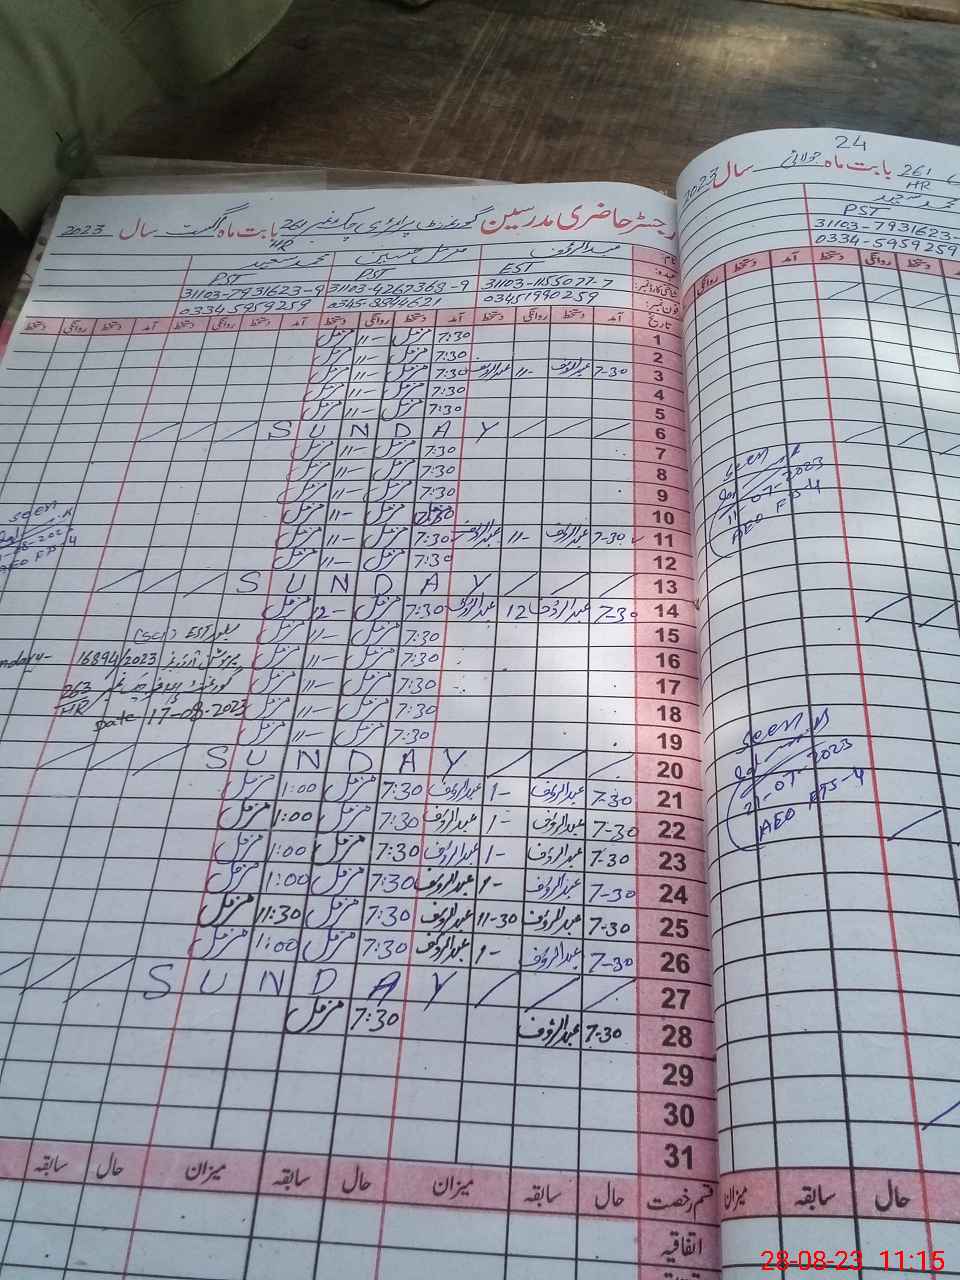 رجسٹر حاضری مدرسین گورنمنٹ پرائمری چک نمبر 261/HR بابت ماہ اگست سال 2023
نام عبدالرؤف مزمل حسین محمد سعید
عہدہ EST PST PST
شناختی کارڈ نمبر 31103-1155077-7 31103-4267368-9 31103-7931623-9
فون نمبر 03451990259 0345-8844621 0334-5959259
تاریخ آمد دستخط روانگی دستخط آمد دستخط روانگی دستخط آمد دستخط روانگی دستخط آمد دستخط روانگی دستخط
1 7:30 مزمل 11- مزمل
2 7:30 مزمل 11- مزمل
3 7-30 عبدالرؤف 11- عبدالرؤف 7:30 مزمل 11- مزمل
4 7:30 مزمل 11- مزمل
5 7:30 مزمل 11- مزمل
6 SUNDAY
7 7:30 مزمل 11- مزمل
8 7:30 مزمل 11- مزمل
9 7:30 مزمل 11- مزمل
10 7:30 مزمل 11- مزمل
11 7-30 عبدالرؤف 11- عبدالرؤف 7:30 مزمل 11- مزمل
12 7:30 مزمل 11- مزمل
13 SUNDAY
14 7-30 عبدالرؤف 12 عبدالرؤف 7:30 مزمل 12- مزمل
15 7:30 مزمل 11- مزمل
16 7:30 مزمل 11- مزمل
17 7:30 مزمل 11- مزمل
18 7:30 مزمل 11- مزمل
19 7:30 مزمل 11- مزمل
20 SUNDAY
21 7-30 عبدالرؤف 1- عبدالرؤف 7:30 مزمل 1:00 مزمل
22 7-30 عبدالرؤف 1- عبدالرؤف 7:30 مزمل 1:00 مزمل
23 7-30 عبدالرؤف 1- عبدالرؤف 7:30 مزمل 1:00 مزمل
24 7-30 عبدالرؤف 1- عبدالرؤف 7:30 مزمل 1:00 مزمل
25 7-30 عبدالرؤف 11-30 عبدالرؤف 7:30 مزمل 11:30 مزمل
26 7-30 عبدالرؤف 1- عبدالرؤف 7:30 مزمل 1:00 مزمل
27 SUNDAY
28 7-30 عبدالرؤف 7:30 مزمل
29
30
31
قسم رخصت حال سابقہ میزان حال سابقہ میزان حال سابقہ
اتفاقیہ
seen
AEO
بطور EST (Sci)
پروموشن آرڈر نمبر 16894/2023
263/HR
Date 17-08-2023
24
261/HR بابت ماہ جولائی سال 2023
محمد سعید
PST
31103-7931623-
0334-5959259
روانگی دستخط آمد دستخط روانگی دستخط
seen
11-07-2023
AEO FTS-4
seen
21-07-2023
AEO FTS-4
حال سابقہ میزان
28-08-23 11:15